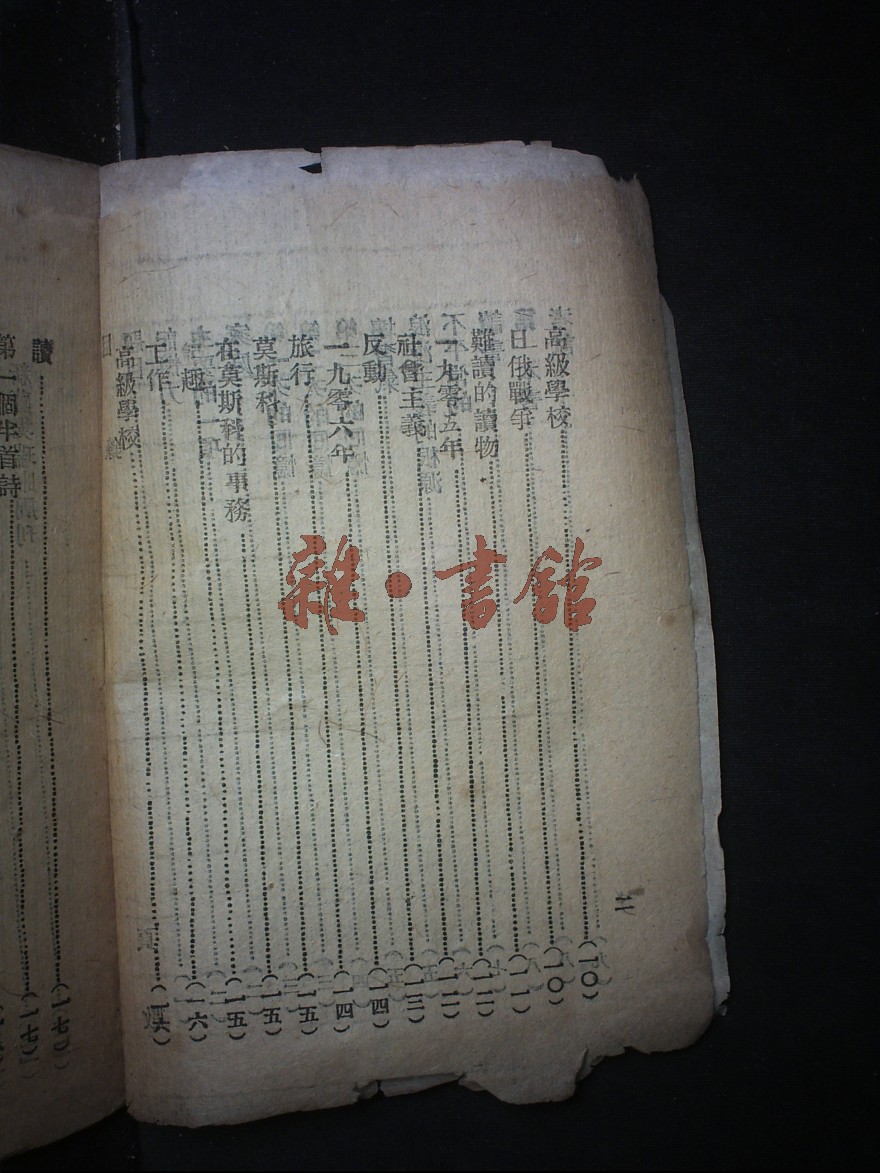 二
高級學校……(一〇)
日俄戰爭……(一〇)
難讀的讀物……(一一)
一九零五年……(一二)
社會主義……(一二)
反動……(一三)
一九零六年……(一四)
旅行……(一四)
莫斯科……(一五)
在莫斯科的事務……(一五)
趣……(一五)
工作……(一六)
高級學校……(一六)
讀……(一七)
第一個半首詩
雜·書館